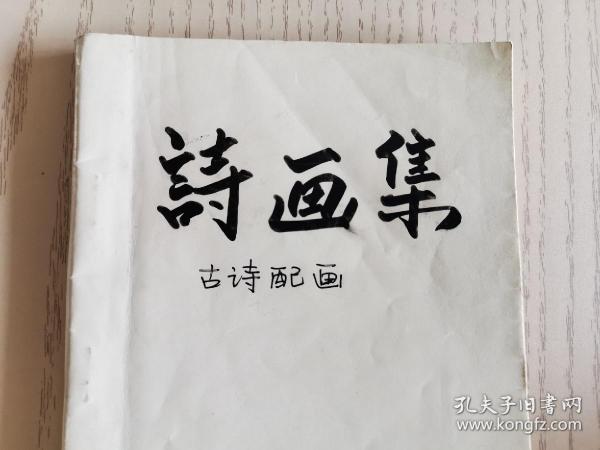 詩画集
古诗配画
孔夫子旧書网
www.kongfz.com